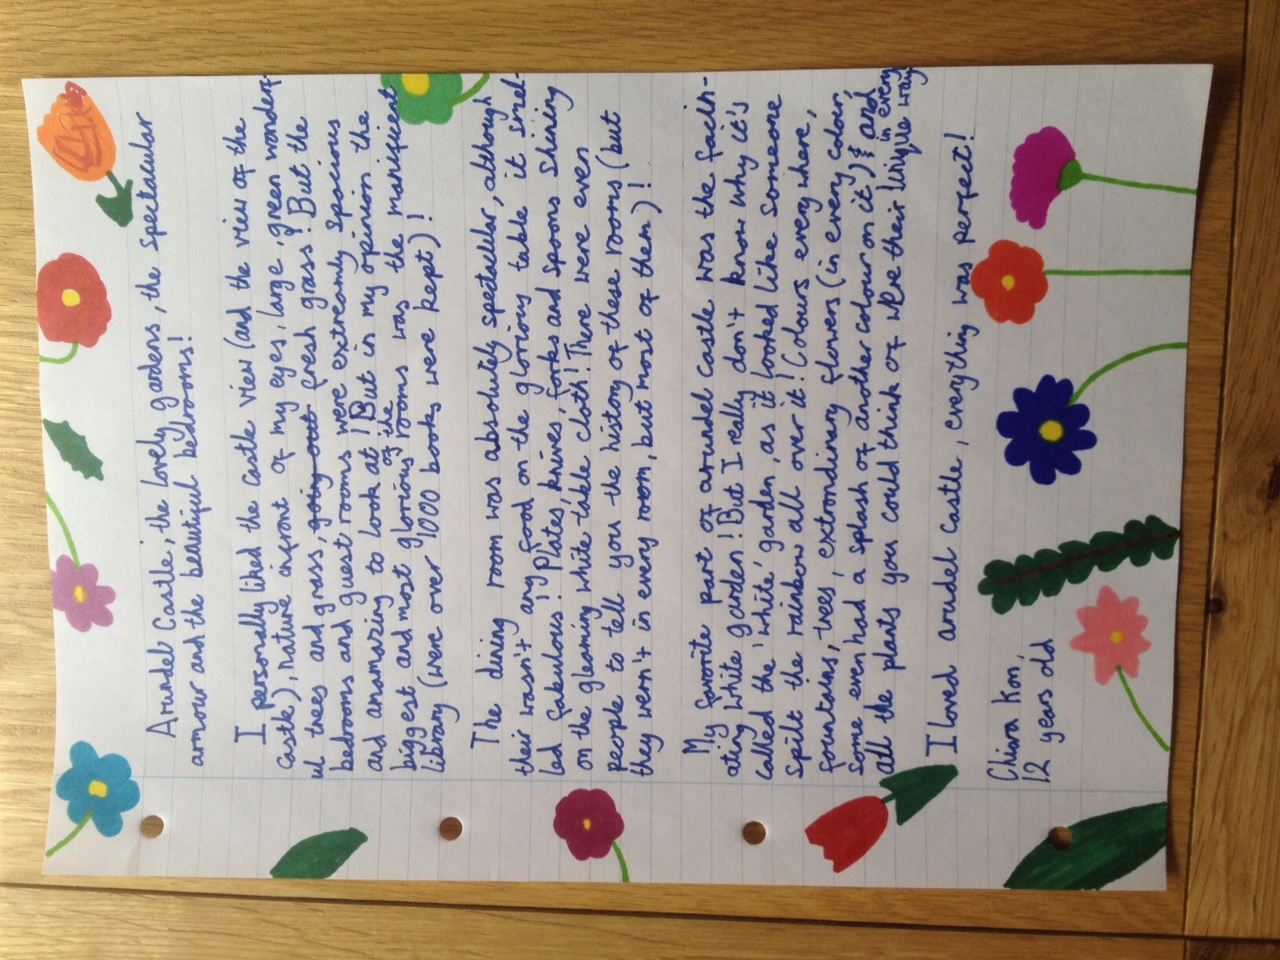 Arundel Castle, the lovely gardens, the spectacular
armour and the beautiful bedrooms!
I personally liked the castle view (and the view of the
castle), nature infront of my eyes, large, green wonderf-
ul trees and grass, going out fresh grass! But the
bedrooms and guest rooms were extreamly spacious
and ammazing to look at! But in my opinion the
biggest and most of the glorius rooms was the manificient
library (were over 1000 books were kept)!
The dining room was absolutely spectacular, although
their wasn't any food on the glorius table it smel-
led fabulous! Plates, knives, forks and spoons shining
on the gleaming white table cloth! There were even
people to tell you the history of these rooms (but
they wern't in every room, but most of them)!
My favorite part of arundel castle was the facin-
ating white garden! But I really don't know why it's
called the 'white' garden, as it looked like someone
spilt the rainbow all over it! Colours every where,
fountains, trees, extrordinary flowers (in every colour,
some even had a splash of another colour on it) & and
all the plants you could think of were their unique in every way
I loved arundel castle, everything was perfect!
Chiara
12 years old